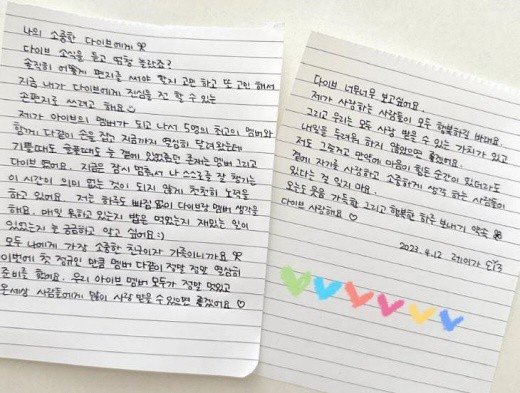 나의 소중한 다이브에게
다이브 소식을 듣고 엄청 놀랐죠?
솔직히 어떻게 편지를 써야 할지 고민 하고 또 고민 해서
지금 내가 다이브에게 진심을 전 할 수 있는
손편지를 쓰려고 해요
제가 아이브의 멤버가 되고 나서 5명의 최고의 멤버와
함께 다같이 손을 잡고 지금까지 열심히 달려왔는데
기쁠때도 슬플때도 늘 곁에 있어줬던 존재는 멤버 그리고
다이브 였어요. 지금은 잠시 멈춰서 나 스스로를 잘 챙기는
이 시간이 의미 없는 것이 되지 않게 천천히 노력을
하고 있어요. 저는 하루도 빠짐 없이 다이브랑 멤버 생각을
해요. 매일 뭐하고 있는지 밥은 먹었는지 재밌는 일이
있었는지 늘 궁금하고 알고 싶어요:)
모두 나에게 가장 소중한 친구이자 가족이니까요
이번에 첫 정규인 만큼 멤버 다같이 정말 정말 열심히
준비를 했어요. 우리 아이브 멤버 모두가 정말 멋있고
온세상 사람들에게 많이 사랑 받을 수 있으면 좋겠어요 ♡
다이브 너무너무 보고싶어요.
제가 사랑하는 사람들이 모두 행복하길 바래요.
그리고 우리는 모두 사랑 받을 수 있는 가치가 있고
내일을 두려워 하지 않았으면 좋겠어요.
저도 그렇고 만약에 마음이 힘든 순간이 있더라도
곁에 자기를 사랑하고 소중하게 생각 하는 사람들이
있다는 걸 잊지 마요.
오늘도 웃음 가득한 그리고 행복한 하루 보내기 약속
다이브 사랑해요 ♡
2023.4.12 레이가